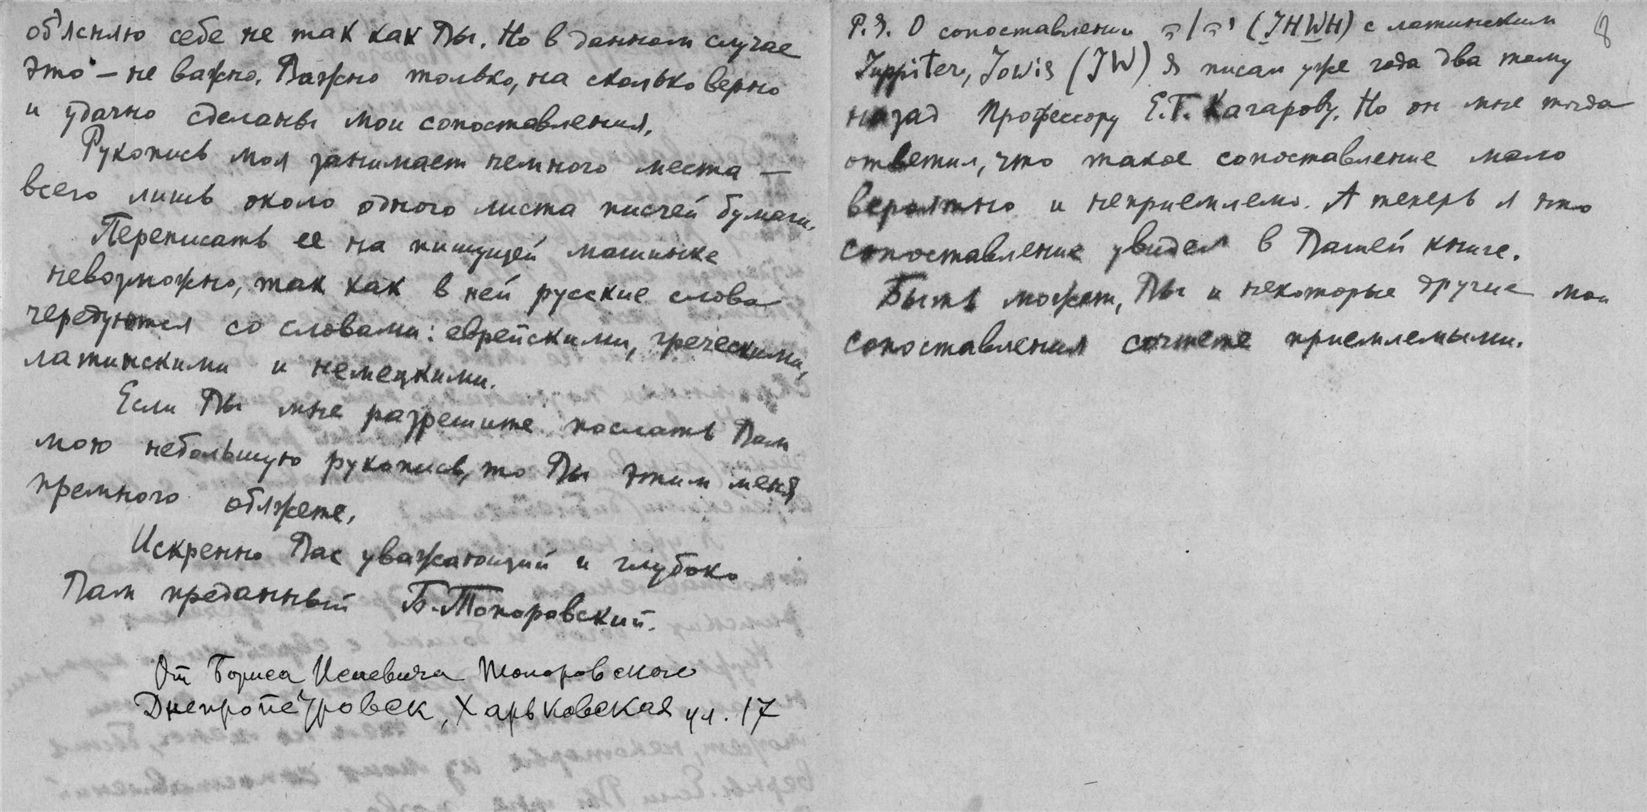 объясняю себе не так как Вы. Но в данном случае
это — не важно. Важно только, на сколько верно
и удачно сделаны мои сопоставления.
Рукопись моя занимает немного места —
всего лишь около одного листа писчей бумаги.
Переписать ее на пишущей машинке
невозможно, так как в ней русские слова
чередуются со словами: еврейскими, греческими,
латинскими и немецкими.
Если Вы мне разрешите послать Вам
мою небольшую рукопись, то Вы этим меня
премного обяжете.
Искренно Вас уважающий и глубоко
Вам преданный Б. Топоровский.
От Бориса Исаевича Топоровского
Днепропетровск, Харьковская ул. 17
8
P.S. О сопоставлении (JHWH) с латинским
Juppiter, Jowis (JW) я писал уже года два тому
назад Профессору Е.Г. Кагарову. Но он мне тогда
ответил, что такое сопоставление мало
вероятно и неприемлемо. А теперь я это
сопоставление увидел в Вашей книге.
Быть может, Вы и некоторые другие мои
сопоставления сочтете приемлемыми.